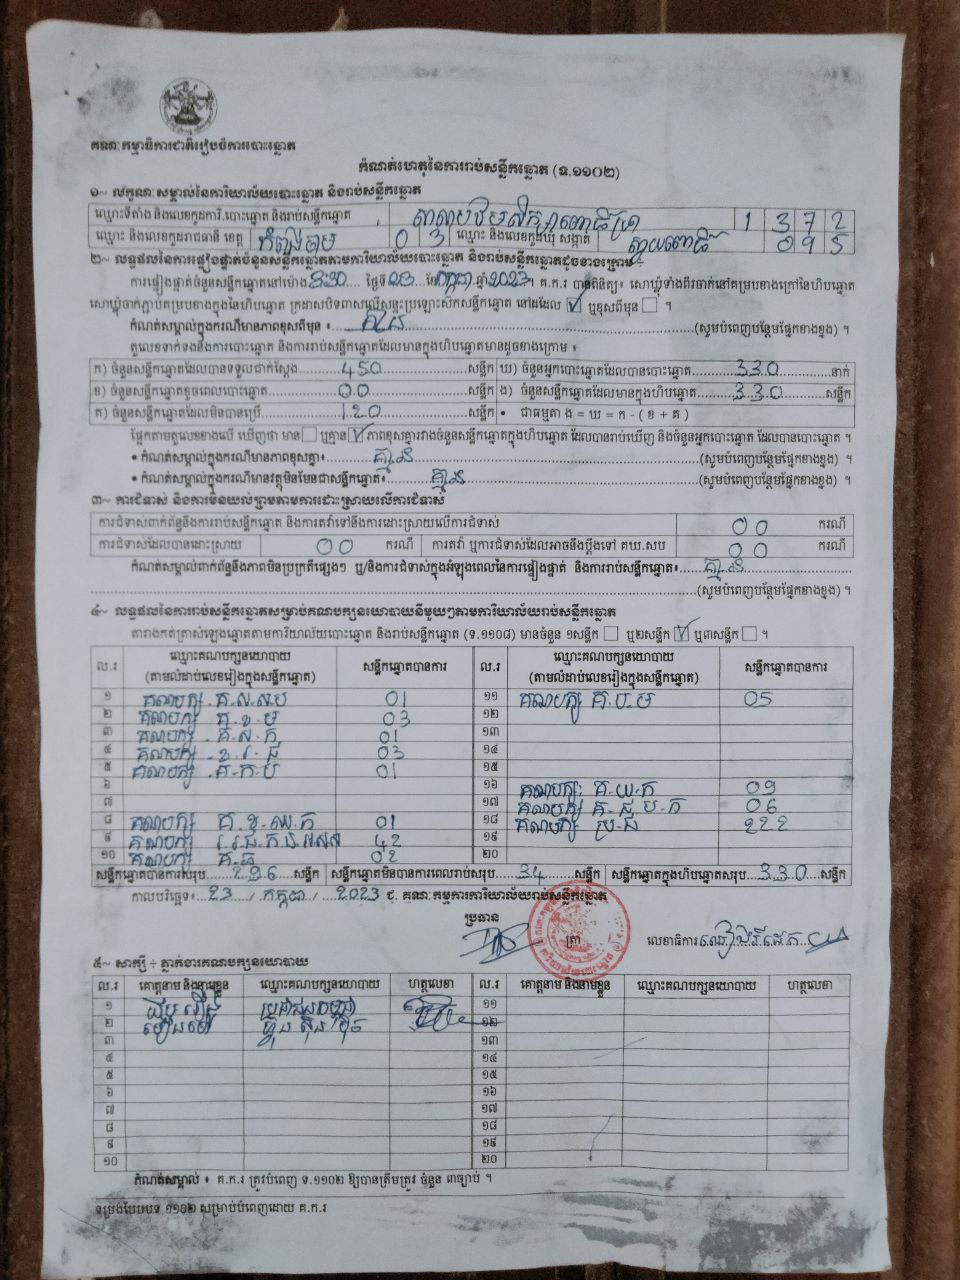 គណៈកម្មាធិការជាតិរៀបចំការបោះឆ្នោត
កំណត់ហេតុនៃការរាប់សន្លឹកឆ្នោត (ទ.១១០២)
១~ លក្ខណៈសម្គាល់នៃការិយាល័យបោះឆ្នោត និងរាប់សន្លឹកឆ្នោត
ឈ្មោះទីតាំង និងលេខកូដការិ.បោះឆ្នោត និងរាប់សន្លឹកឆ្នោត 1 3 7 2
ឈ្មោះ និងលេខកូដរាជធានី ខេត្ត កំពង់ចាម 0 3 ឈ្មោះ និងលេខកូដឃុំ សង្កាត់ ស្វាយពោធិ៍ 0 9 5
២~ លទ្ធផលនៃការផ្ទៀងផ្ទាត់ចំនួនសន្លឹកឆ្នោតតាមការិយាល័យបោះឆ្នោត និងរាប់សន្លឹកឆ្នោតដូចខាងក្រោម ៖
ការផ្ទៀងផ្ទាត់ចំនួនសន្លឹកឆ្នោតនៅម៉ោង 3:30 ថ្ងៃទី 23 ខែកក្កដា ឆ្នាំ 2023 ។ គ.ក.រ បានពិនិត្យ៖ សោឃ្លុំទាំងពីរចាក់នៅគម្របខាងក្រៅនៃហិបឆ្នោត
សោឃ្លុំចាក់ភ្ជាប់គម្របខាងក្នុងនៃហិបឆ្នោត ក្រដាសបិទពាសលើសន្ទះប្រឡោះស៊កសន្លឹកឆ្នោត នៅដដែល ឬខុសពីមុន ។
កំណត់សម្គាល់ក្នុងករណីមានភាពខុសពីមុន ៖ គ្មាន (សូមបំពេញបន្ថែមផ្នែកខាងខ្នង) ។
តួលេខទាក់ទងនឹងការបោះឆ្នោត និងការរាប់សន្លឹកឆ្នោតដែលមានក្នុងហិបឆ្នោតមានដូចខាងក្រោម ៖
ក) ចំនួនសន្លឹកឆ្នោតដែលបានទទួលជាក់ស្តែង 450 សន្លឹក ឃ) ចំនួនអ្នកបោះឆ្នោតដែលបានបោះឆ្នោត 330 នាក់
ខ) ចំនួនសន្លឹកឆ្នោតខូចពេលបោះឆ្នោត 00 សន្លឹក ង) ចំនួនសន្លឹកឆ្នោតដែលមានក្នុងហិបឆ្នោត 330 សន្លឹក
គ) ចំនួនសន្លឹកឆ្នោតដែលមិនបានប្រើ 120 សន្លឹក • ជាធម្មតា ង = ឃ = ក - ( ខ + គ )
ផ្អែកតាមតួលេខខាងលើ ឃើញថា មាន ឬគ្មាន ភាពខុសគ្នារវាងចំនួនសន្លឹកឆ្នោតក្នុងហិបឆ្នោត ដែលបានរាប់ឃើញ និងចំនួនអ្នកបោះឆ្នោត ដែលបានបោះឆ្នោត ។
• កំណត់សម្គាល់ក្នុងករណីមានភាពខុសគ្នា៖ គ្មាន (សូមបំពេញបន្ថែមផ្នែកខាងខ្នង) ។
• កំណត់សម្គាល់ក្នុងករណីមានវត្ថុមិនមែនជាសន្លឹកឆ្នោត៖ គ្មាន (សូមបំពេញបន្ថែមផ្នែកខាងខ្នង) ។
៣~ ការជំទាស់ និងការមិនយល់ព្រមតាមការដោះស្រាយលើការជំទាស់
ការជំទាស់ពាក់ព័ន្ធនឹងការរាប់សន្លឹកឆ្នោត និងការតវ៉ាទៅនឹងការដោះស្រាយលើការជំទាស់ 00 ករណី
ការជំទាស់ដែលបានដោះស្រាយ 00 ករណី ការតវ៉ា ឬការជំទាស់ដែលអាចនឹងប្តឹងទៅ គឃ.សប 00 ករណី
កំណត់សម្គាល់ពាក់ព័ន្ធនឹងភាពមិនប្រក្រតីផ្សេងៗ ឬ/និងការជំទាស់ក្នុងអំឡុងពេលនៃការផ្ទៀងផ្ទាត់ និងការរាប់សន្លឹកឆ្នោត៖ គ្មាន
(សូមបំពេញបន្ថែមផ្នែកខាងខ្នង) ។
៤~ លទ្ធផលនៃការរាប់សន្លឹកឆ្នោតសម្រាប់គណបក្សនយោបាយនីមួយៗតាមការិយាល័យរាប់សន្លឹកឆ្នោត
តារាងកត់ត្រាសំឡេងឆ្នោតតាមការិយាល័យបោះឆ្នោត និងរាប់សន្លឹកឆ្នោត (ទ.១១០៨) មានចំនួន ១សន្លឹក ឬ២សន្លឹក ឬ៣សន្លឹក ។
ល.រ ឈ្មោះគណបក្សនយោបាយ (តាមលំដាប់លេខរៀងក្នុងសន្លឹកឆ្នោត) សន្លឹកឆ្នោតបានការ ល.រ ឈ្មោះគណបក្សនយោបាយ (តាមលំដាប់លេខរៀងក្នុងសន្លឹកឆ្នោត) សន្លឹកឆ្នោតបានការ
១ គណបក្ស គ.ស.ស.ប 01 ១១ គណបក្ស គ.ប.ម 05
២ គណបក្ស គ.ខ.ម 03 ១២
៣ គណបក្ស គ.ស.ក 01 ១៣
៤ គណបក្ស ខ.រ.ជ 03 ១៤
៥ គណបក្ស គ.ក.ប 01 ១៥
៦ ១៦ គណបក្ស គ.យ.ក 09
៧ ១៧ គណបក្ស គ.ជ.ប.ក 06
៨ គណបក្ស 01 ១៨ គណបក្ស ប្រ.ជ 222
៩ គណបក្ស 42 ១៩
១០ គណបក្ស គ.ធ 02 ២០
សន្លឹកឆ្នោតបានការសរុប 296 សន្លឹក សន្លឹកឆ្នោតមិនបានការពេលរាប់សរុប 34 សន្លឹក សន្លឹកឆ្នោតក្នុងហិបឆ្នោតសរុប 330 សន្លឹក
កាលបរិច្ឆេទ៖ 23 / កក្កដា / 2023 ជ. គណៈកម្មការការិយាល័យរាប់សន្លឹកឆ្នោត
ប្រធាន
ត្រា លេខាធិការ
៥~ សាក្សី ÷ ភ្នាក់ងារគណបក្សនយោបាយ
ល.រ គោត្តនាម និងនាមខ្លួន ឈ្មោះគណបក្សនយោបាយ ហត្ថលេខា ល.រ គោត្តនាម និងនាមខ្លួន ឈ្មោះគណបក្សនយោបាយ ហត្ថលេខា
១ ប្រជាជនកម្ពុជា ១១
២ ហ្វ៊ុនស៊ិនប៉ិច ១២
៣ ១៣
៤ ១៤
៥ ១៥
៦ ១៦
៧ ១៧
៨ ១៨
៩ ១៩
១០ ២០
កំណត់សម្គាល់ ៖ គ.ក.រ ត្រូវបំពេញ ទ.១១០២ ឱ្យបានត្រឹមត្រូវ ចំនួន ៣ច្បាប់ ។
ទម្រង់បែបបទ ១១០២ សម្រាប់បំពេញដោយ គ.ក.រ